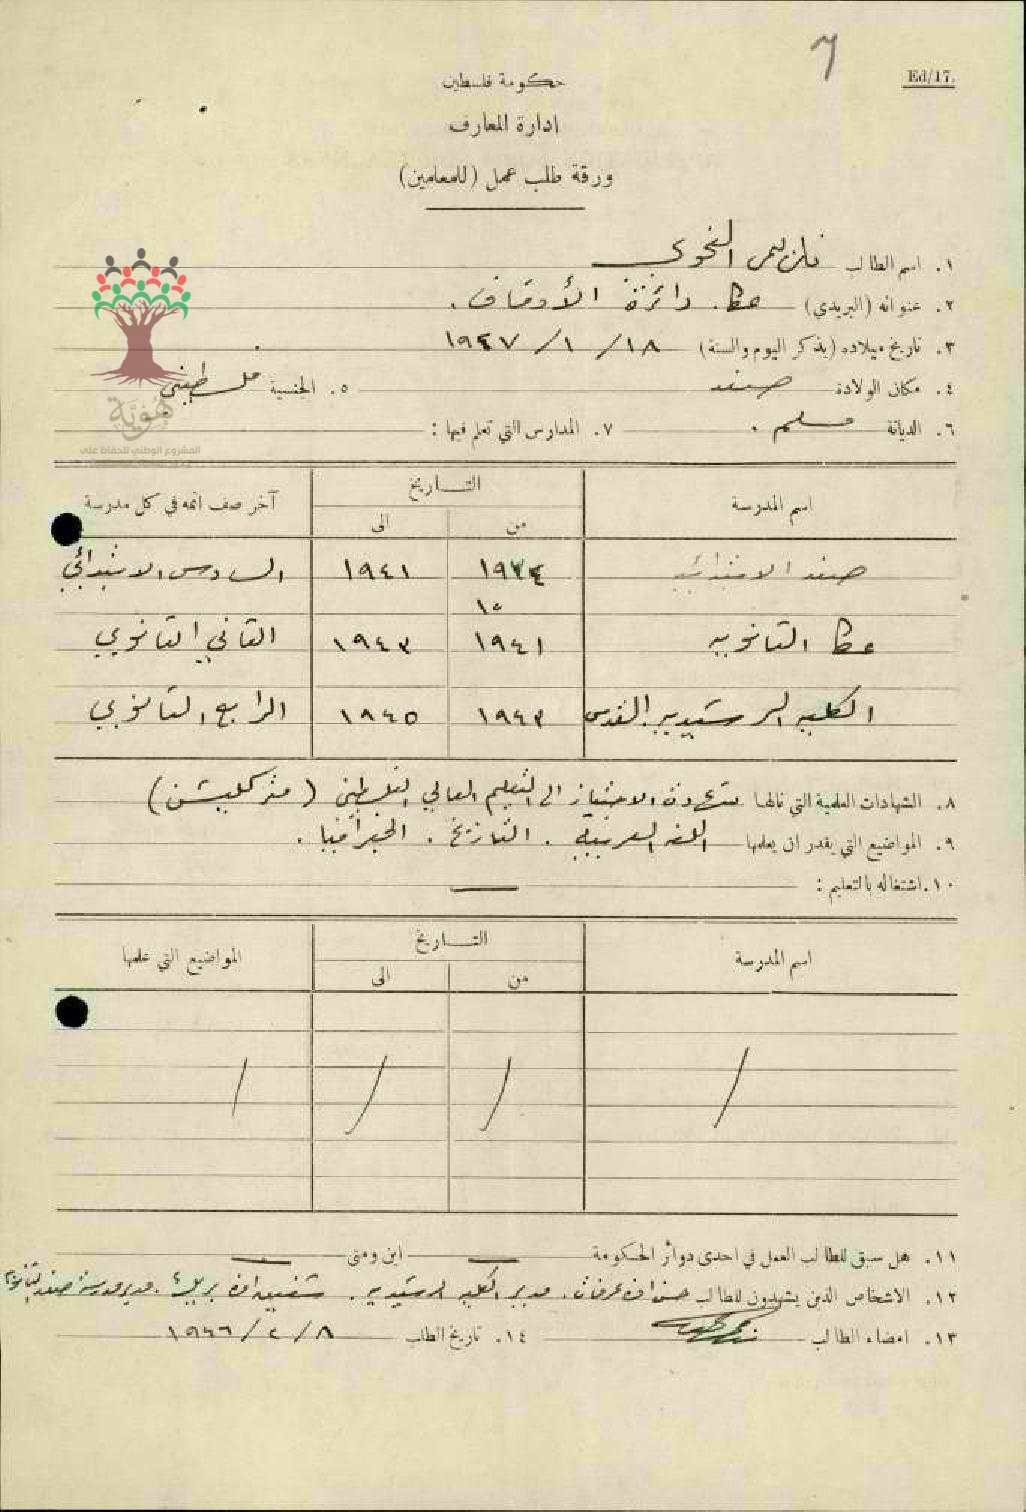 ٦
Ed/17.
حكومة فلسطين
ادارة المعارف
ورقة طلب عمل (للمعلمين)
١. اسم الطالب النحوي
٢. عنوانه (البريدي) عكا. دائرة الأوقاف.
٣. تاريخ ميلاده (يذكر اليوم والسنة) ١٨ / ١ / ١٩٢٧
٤. مكان الولادة صفد ٥. الجنسية فلسطيني
٦. الديانة مسلم. ٧. المدارس التي تعلم فيها:
هُويّة
المشروع الوطني للحفاظ على
اسم المدرسة التاريخ آخر صف اتمه في كل مدرسة
من الى
صفد الابتدائيه ١٩٣٤ ١٩٤١ السادس الابتدائي
عكا الثانويه ١٩٤١ ١٩٤٣ الثاني الثانوي
الكليه الرشيديه القدس ١٩٤٣ ١٩٤٥ الرابع الثانوي
٨. الشهادات العلمية التي نالها شهادة الاجتياز الى التعليم العالي الفلسطيني (متركليشن)
٩. المواضيع التي يقدر ان يعلمها اللغه العربيه. التاريخ. الجغرافيا.
١٠. اشتغاله بالتعليم: —
اسم المدرسة التاريخ المواضيع التي علمها
من الى
/ / / /
١١. هل سبق للطالب العمل في احدى دوائر الحكومة — اين ومتى —
١٢. الاشخاص الذين يشهدون للطالب حسن عرفات. مدير الكليه الرشيديه. مدير مدرسة صفد الثانويه
١٣. امضاء الطالب ١٤. تاريخ الطلب ٨ / ٢ / ١٩٤٦